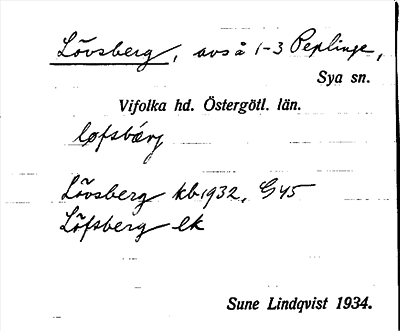 Lövsberg, avs å 1-3 Peplinge,
Sya sn.
Vifolka hd. Östergötl. län.
løfsbærj
Lövsberg kb 1932, G45
Löfsberg ek
Sune Lindqvist 1934.